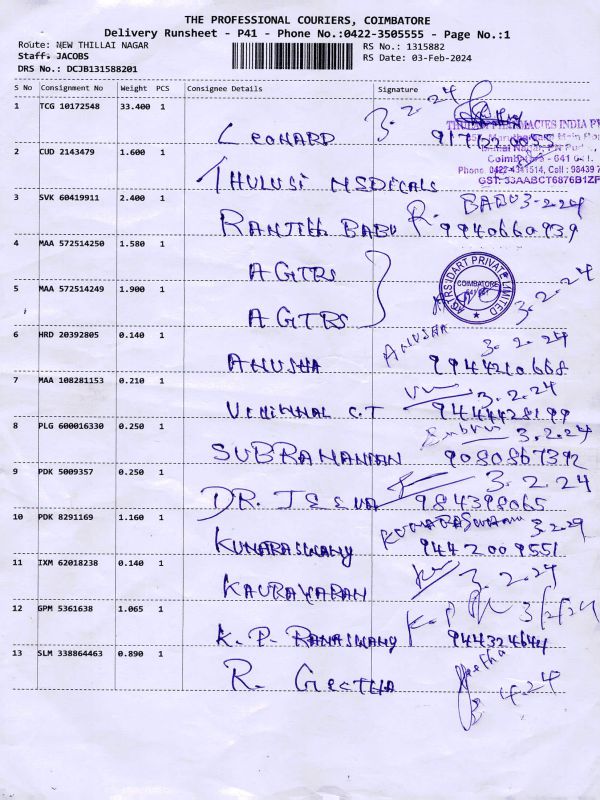 THE PROFESSIONAL COURIERS, COIMBATORE
Delivery Runsheet - P41 - Phone No.:0422-3505555 - Page No.:1
Route: NEW THILLAI NAGAR
Staff: JACOBS
DRS No.: DCJB131588201
RS No.: 1315882
RS Date: 03-Feb-2024
S No Consignment No Weight PCS Consignee Details Signature
1 TCG 10172548 33.400 1
LEONARD 3.2.24
2 CUD 2143479 1.600 1
THULUSI MEDICALS
Coimbatore - 641 041.
GST: 33AABCT6876B1ZP
3 SVK 60419911 2.400 1
RANJITH BABU R. BABU 3-2-24
9940660939
4 MAA 572514250 1.580 1
AGTRS
5 MAA 572514249 1.900 1
AGTRS 3.2.24
PRIVATE LIMITED
COIMBATORE
6 HRD 20392805 0.140 1
ANUSHA ANUSHA 3.2.24
9944210668
7 MAA 108281153 0.210 1
C.T 3.2.24
8 PLG 600016330 0.250 1
SUBRAMANIAN 3.2.24
9080867392
9 PDK 5009357 0.250 1
DR. JEEVA 3.2.24
984398065
10 PDK 8291169 1.160 1
KUMARASWAMY KUMARASWAMY 3.2.24
9442009551
11 IXM 62018238 0.140 1
3.2.24
12 GPM 5361638 1.065 1
K. P. RAMASWAMY K. P 3/2/24
944324644
13 SLM 338864463 0.890 1
R. GEETHA Geetha
3.4.24